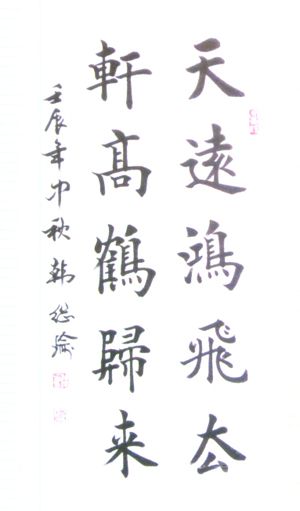 天遠鴻飛厺
軒髙鶴歸来
壬辰年中秋韩